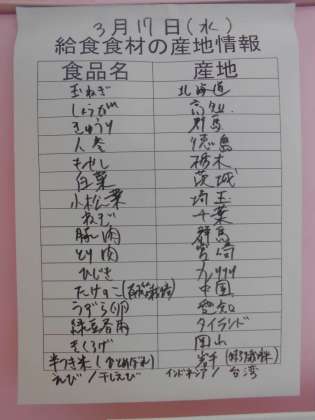 3月17日(水)
給食食材の産地情報
食品名 産地
玉ねぎ 北海道
しょうが 高知
きゅうり 群馬
人参 徳島
もやし 栃木
白菜 茨城
小松菜 埼玉
ねぎ 千葉
豚肉 群馬
とり肉 宮崎
ひじき 九州
たけのこ 中国
うずら卵 愛知
緑豆春雨 タイランド
きくらげ 岡山
半つき米(ひとめぼれ) 岩手
えび/干しえび インドネシア/台湾